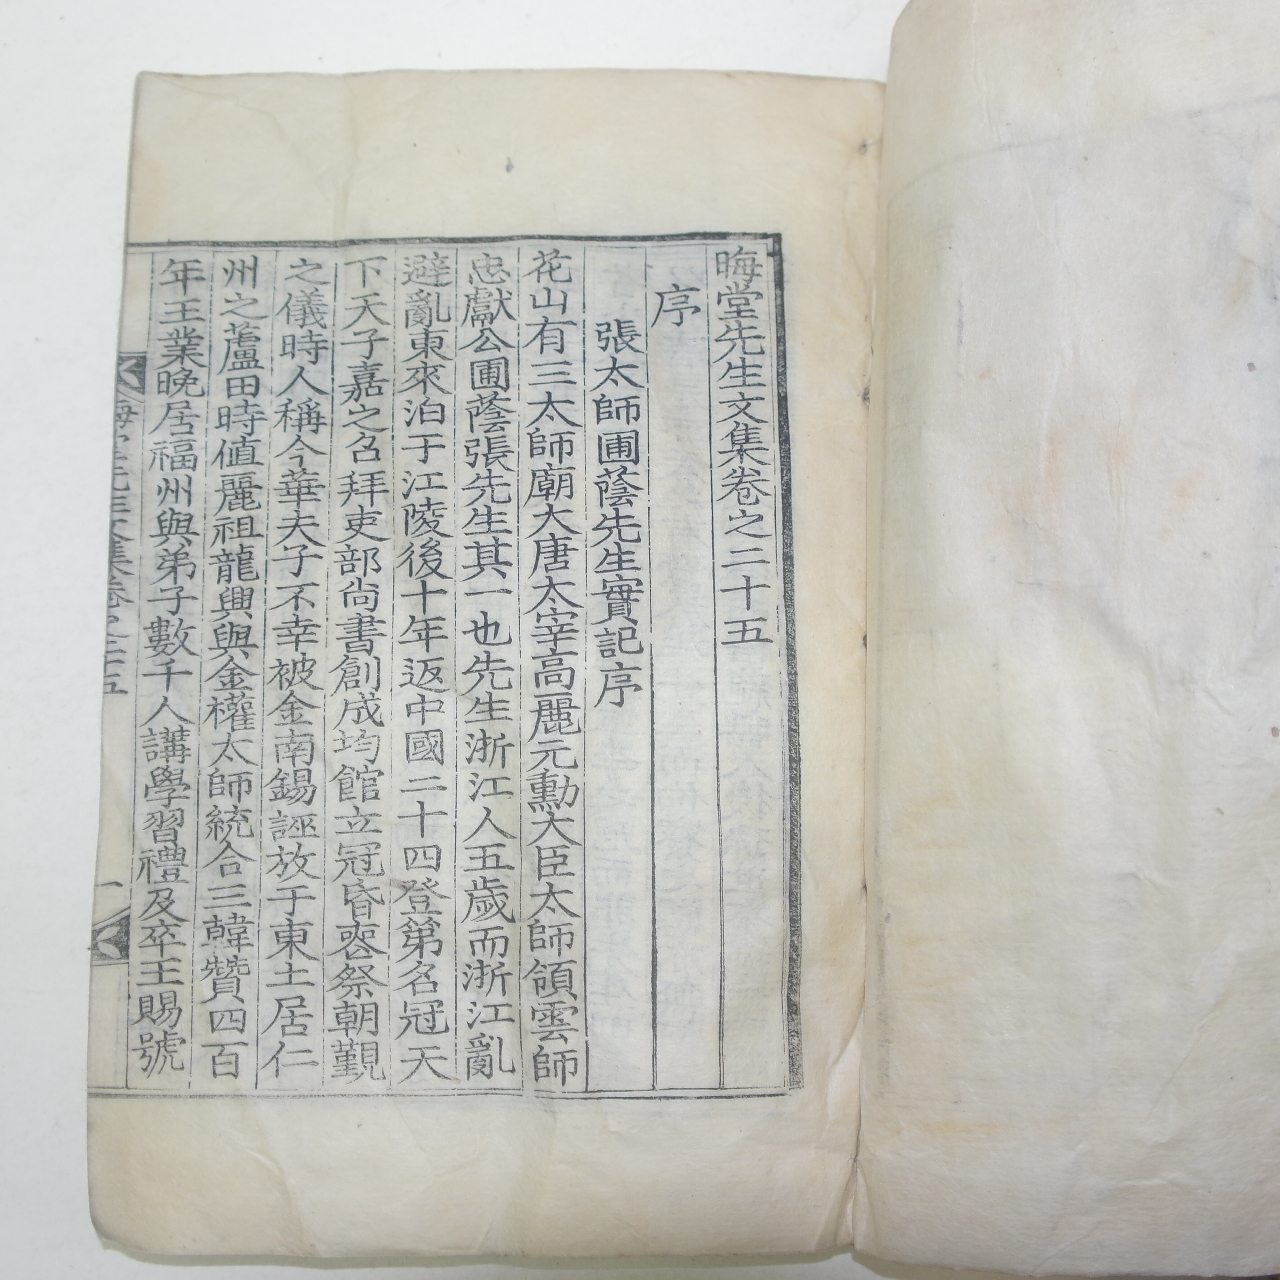 晦堂先生文集卷之二十五
序
張太師圃蔭先生實記序
花山有三太師廟大唐太宰高麗元勳大臣太師領雲師
忠獻公圃蔭張先生其一也先生浙江人五歲而浙江亂
避亂東來泊于江陵後十年返中國二十四登第名冠天
下天子嘉之名拜吏部尙書創成均館立冠昏喪祭朝覲
之儀時人稱今華夫子不幸被金南錫誣放于東土居仁
州之蘆田時値麗祖龍興與金權太師統合三韓贊四百
年王業晩居福州與弟子數千人講學習禮及卒王賜號
晦堂先生文集卷之二十五
一